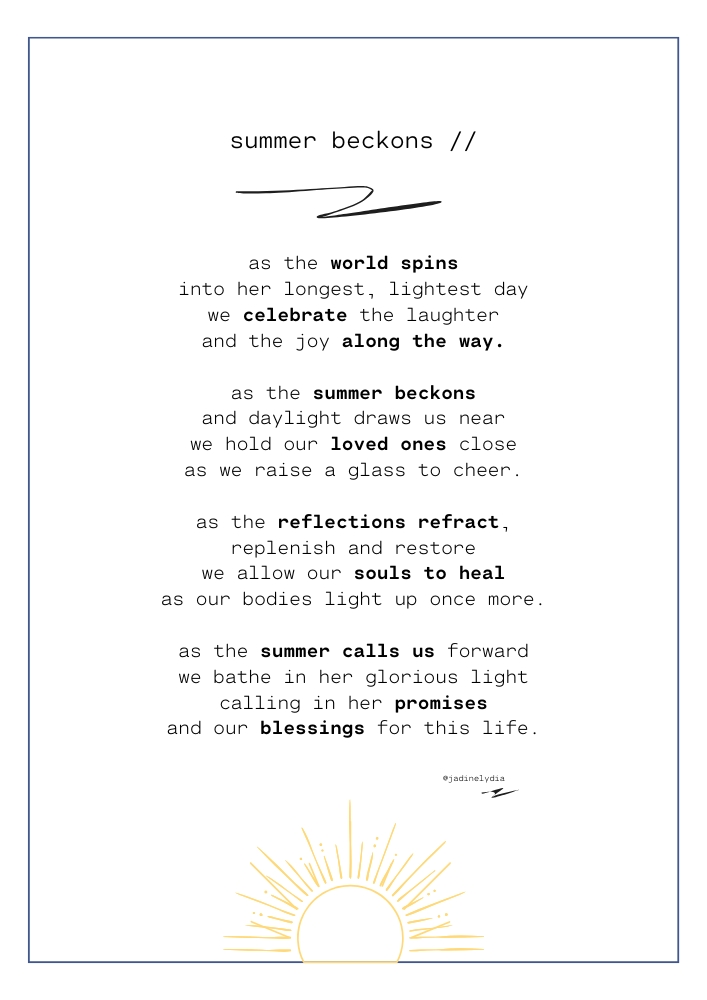 summer beckons //
as the world spins
into her longest, lightest day
we celebrate the laughter
and the joy along the way.
as the summer beckons
and daylight draws us near
we hold our loved ones close
as we raise a glass to cheer.
as the reflections refract,
replenish and restore
we allow our souls to heal
as our bodies light up once more.
as the summer calls us forward
we bathe in her glorious light
calling in her promises
and our blessings for this life.
@jadinelydia